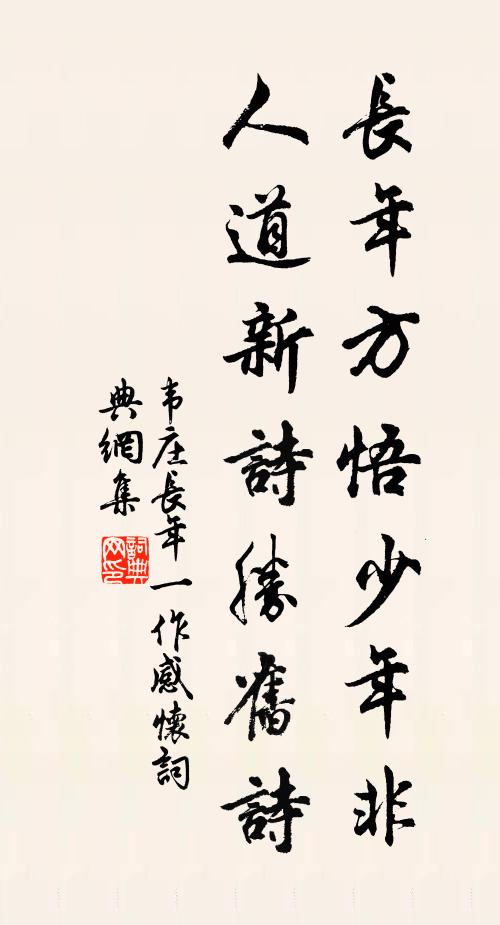 長年方悟少年非
人道新詩勝舊詩
韦庄長年一作感懷詞
典網集
詞典网印